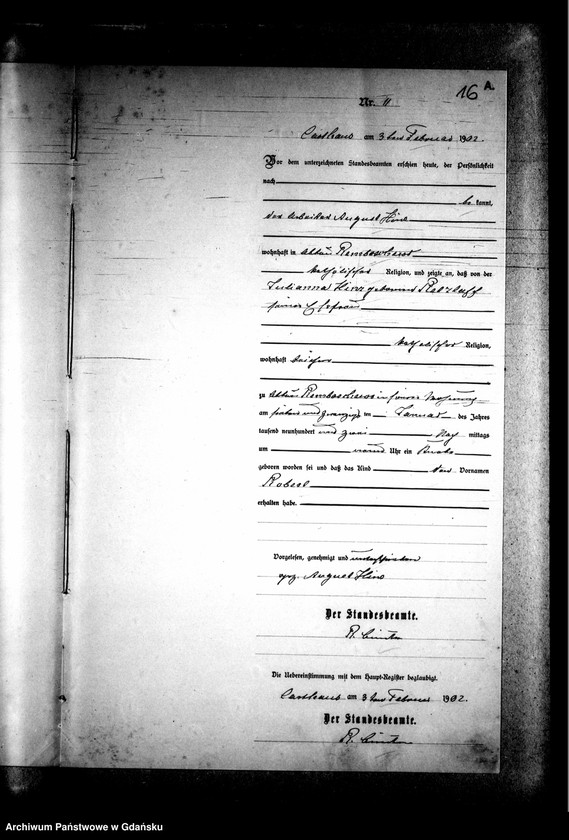 16 A.
Nr. 11
Carthaus am 3ten Februar 1902.
Vor dem unterzeichneten Standesbeamten erschien heute, der Persönlichkeit
nach
be kannt,
der Arbeiter August
wohnhaft in
katholischer Religion, und zeigte an, daß von der
Julianna geborene
seiner Ehefrau
katholischer Religion,
wohnhaft bei ihm
zu in seiner Wohnung
am sieben und zwanzigsten Januar des Jahres
tausend neunhundert und zwei Nach mittags
um neun Uhr ein Knabe
geboren worden sei und daß das Kind den Vornamen
Robert
erhalten habe.
Vorgelesen, genehmigt und unterschrieben
gez. August
Der Standesbeamte.
Die Uebereinstimmung mit dem Haupt-Register beglaubigt.
Carthaus am 3ten Februar 1902.
Der Standesbeamte.
Archiwum Państwowe w Gdańsku